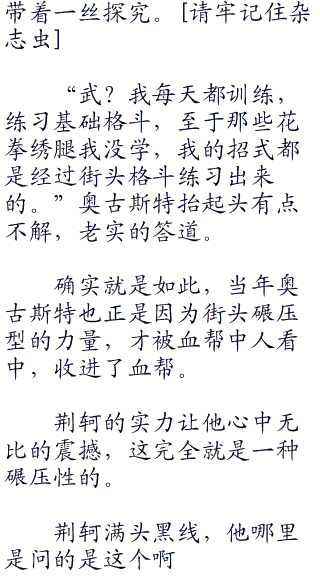 带着一丝探究。[请牢记住杂
志虫]
“武？我每天都训练，
练习基础格斗，至于那些花
拳绣腿我没学，我的招式都
是经过街头格斗练习出来
的。”奥古斯特抬起头有点
不解，老实的答道。
确实就是如此，当年奥
古斯特也正是因为街头碾压
型的力量，才被血帮中人看
中，收进了血帮。
荆轲的实力让他心中无
比的震撼，这完全就是一种
碾压性的。
荆轲满头黑线，他哪里
是问的是这个啊